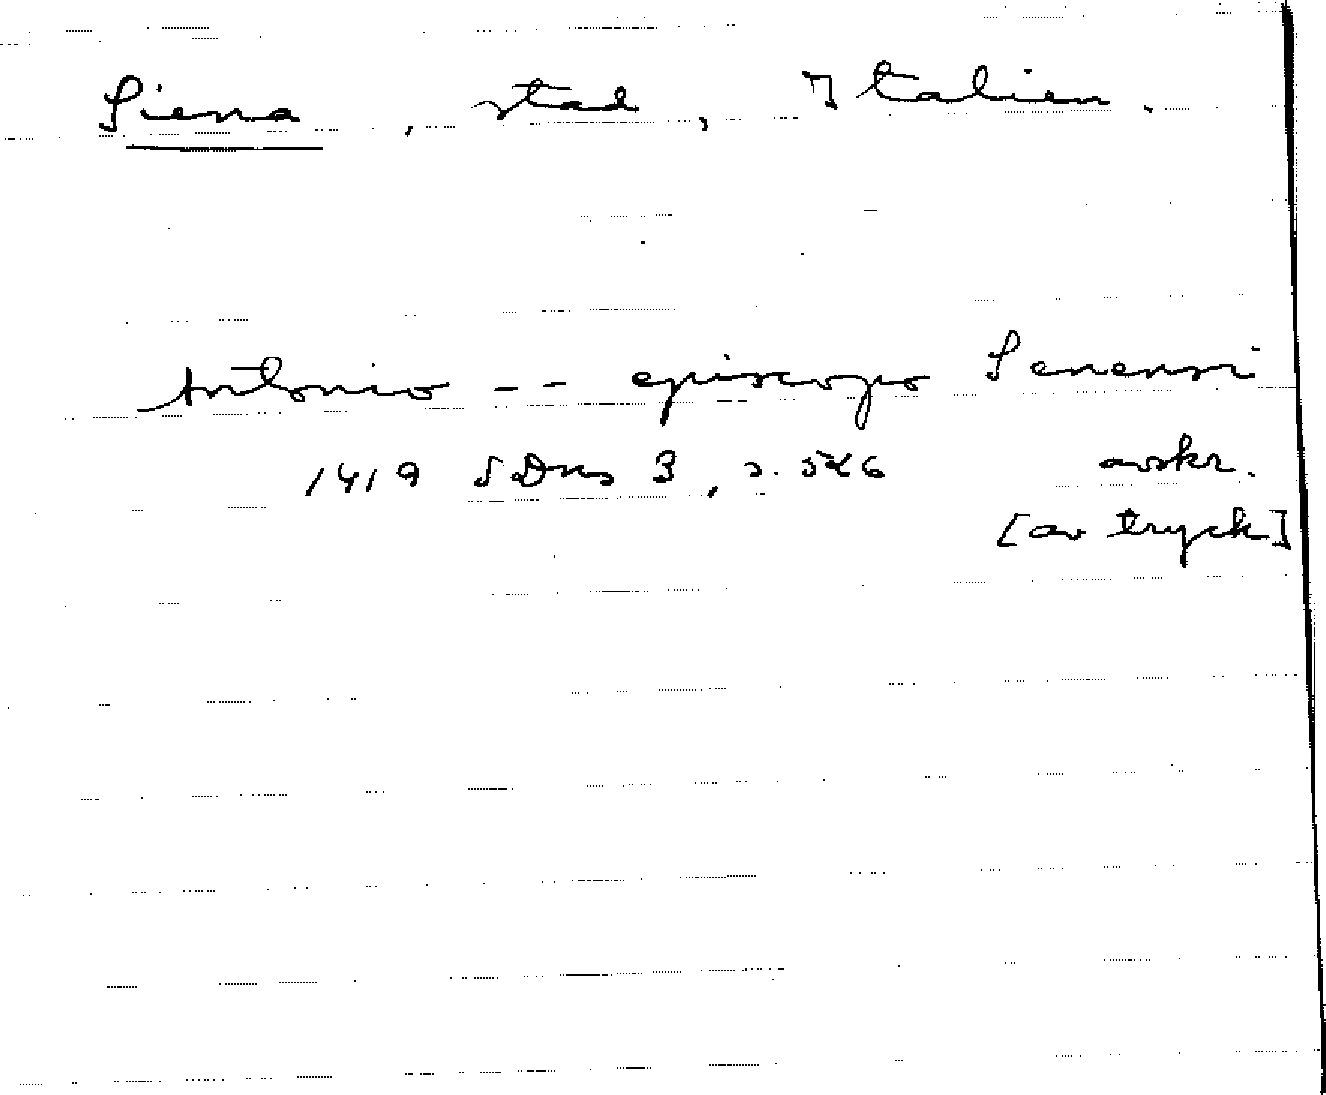 Siena, stad, Italien.
Antonio -- episcopo Senensi
1419 SDns 3, s. 526 avskr.
[av tryck]